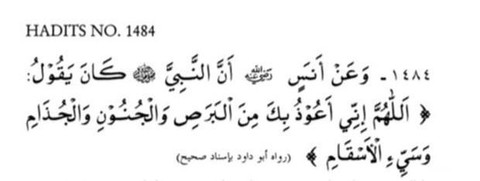 HADITS NO. 1484
١٤٨٤ - وَعَنْ أَنَسٍ ﵁ أَنَّ النَّبِيَّ ﷺ كَانَ يَقُوْلُ:
﴿ اَللّٰهُمَّ إِنِّي أَعُوْذُ بِكَ مِنَ الْبَرَصِ وَالْجُنُوْنِ وَالْجُذَامِ
وَسَيِّءِ الْأَسْقَامِ ﴾ (رواه أبو داود بإسناد صحيح)